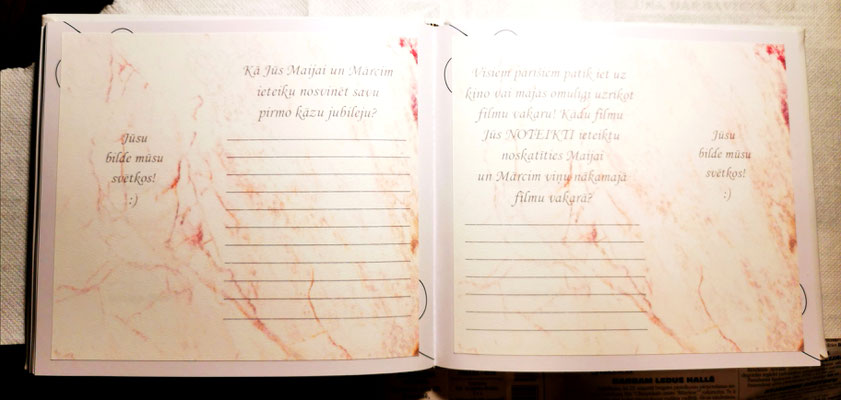 Kā Jūs Maijai un Mārcim
ieteiktu nosvinēt savu
pirmo kāzu jubileju?
Jūsu
bilde mūsu
svētkos!
:)
Visiem pārīšiem patīk iet uz
kino vai mājās omulīgi uzrīkot
filmu vakaru! Kādu filmu
Jūs NOTEIKTI ieteiktu
noskatīties Maijai
un Mārcim viņu nākamajā
filmu vakarā?
Jūsu
bilde mūsu
svētkos!
:)
LEDUS HALLĒ